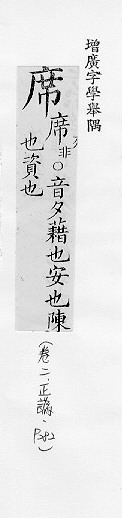 增廣字學舉隅
席
席非○音夕藉也安也陳
也資也
(卷二·正譌·P382)